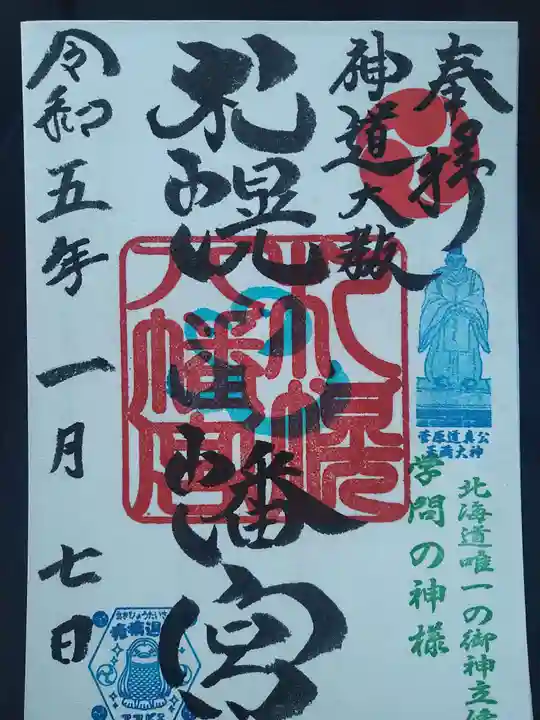 奉拝
神道大教
札幌八幡宮
令和五年一月七日
札幌
八幡宮
菅原道真公
天満大神
学問の神様
北海道唯一の御神立
アマビエ